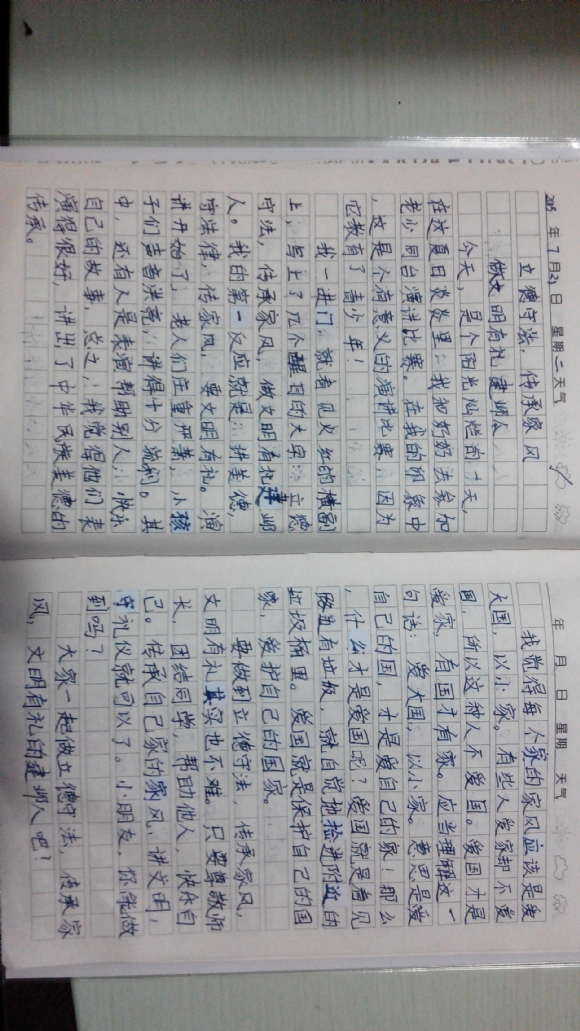 2015 年 7 月 21 日 星期二 天气
立德守法，传承家风
做文明有礼建邺人
今天，是个阳光灿烂的一天，
在这夏日炎炎里，我和奶奶去参加
老少同台演讲比赛。在我的印象中
，这是个有意义的演讲比赛，因为
它教育了青少年！
我一进门，就看见火红的横副
上，写上了几个醒目的大字：立德
守法，传承家风，做文明有礼建邺
人。我的第一反应就是：讲美德，
守法律，传家风，要文明有礼。演
讲开始了，老人们庄重严肃，小孩
子们声音洪亮，讲得十分流利。其
中，还有人是表演帮助别人，快乐
自己的故事，总之，我觉得他们表
演得很好，讲出了中华民族美德的
传承。
年 月 日 星期 天气
我觉得每个家的家风应该是爱
大国，以小家。有些人爱家却不爱
国，所以这种人不爱国。爱国才是
爱家，有国才有家。应当理解这一
句话：爱大国，以小家。意思是爱
自己的国，才是爱自己的家！那么
，什么才是爱国呢？爱国就是看见
路边有垃圾，就自觉地捡进附近的
垃圾桶里。爱国就是保护自己的国
家，爱护自己的国家。
要做到立德守法，传承家风，
文明有礼其实也不难。只要尊敬师
长，团结同学，帮助他人，快乐自
己。传承自己家的家风，讲文明，
守礼仪就可以了。小朋友，你能做
到吗？
大家一起做立德守法，传承家
风，文明有礼的建邺人吧！